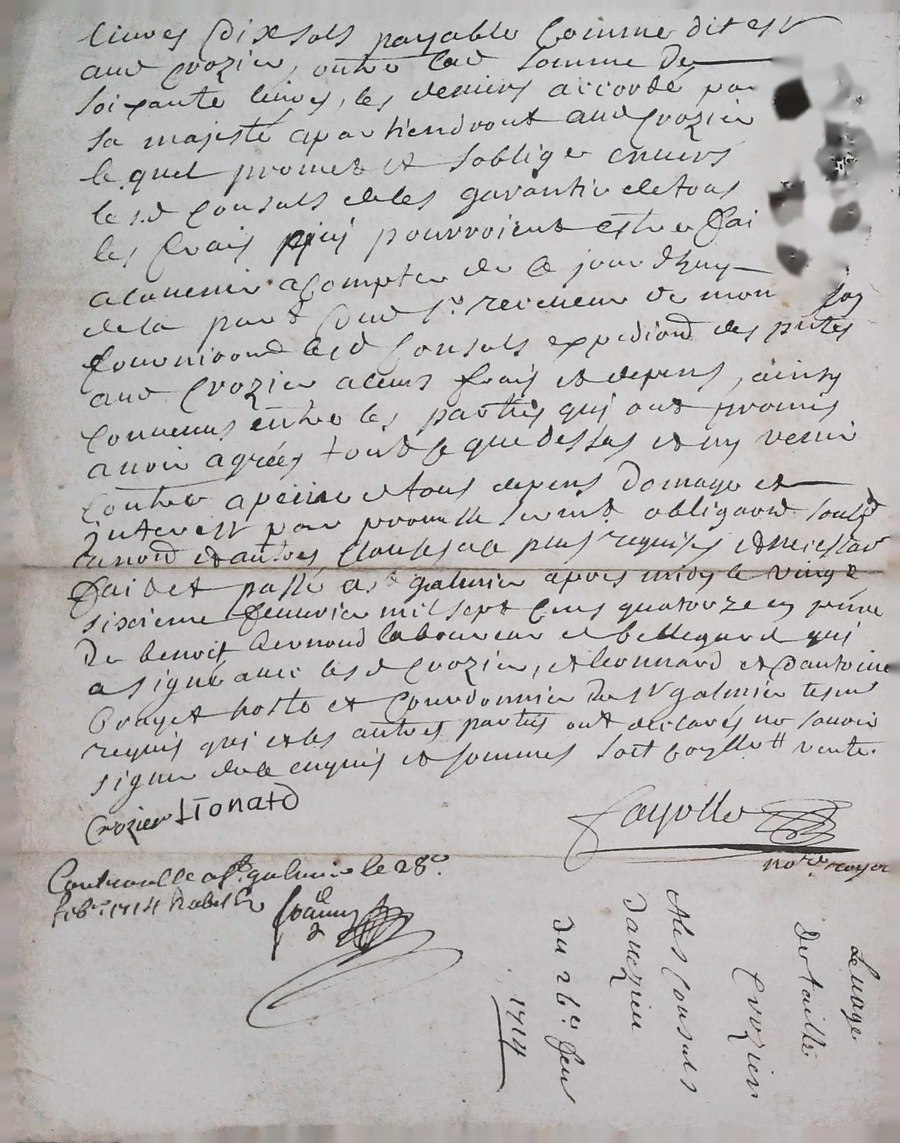 livres dix sols payable Comme dit est
aud Crozier, outre lad somme de
soixante livres, les deniers accordé par
sa majesté apartiendront aud Crozier
lequel promet et soblige envers
les.d Consuls de les garantir de tous
les frais qui pourroient estre fai
avenir a Compter de Ce jourdhuy
de la part dud Sr. receveur de mon
fourniront lesd Consuls expedition des
aud Crozier a leurs frais et depens, ainsy
Convenus entre les parties qui ont promis
avoir agreés tout Ce que dessus et ny venir
Contre a peine de tous depens domage et
interest par serment obligation
et autres Clauses a ce plus requises et
fait et passé a st galmier apres midy le vingt
sixieme fevrier mil sept Cens quatorze en
De benoist laboureur de bellegarde qui
a signé avec lesd Crozier, et leonnard et dantoine
hoste et Courdonnier du st galmier
requis qui et les autres parties ont declarés ne savoir
signer de ce enquis et sommes soit
Crozier LIONARD
Fayolle
nore. royal
Controuelle a st. galmier le 28e.
feb. 1714
Levage
De taille
Crozier
Ales Consuls
Du 26e fev
1714